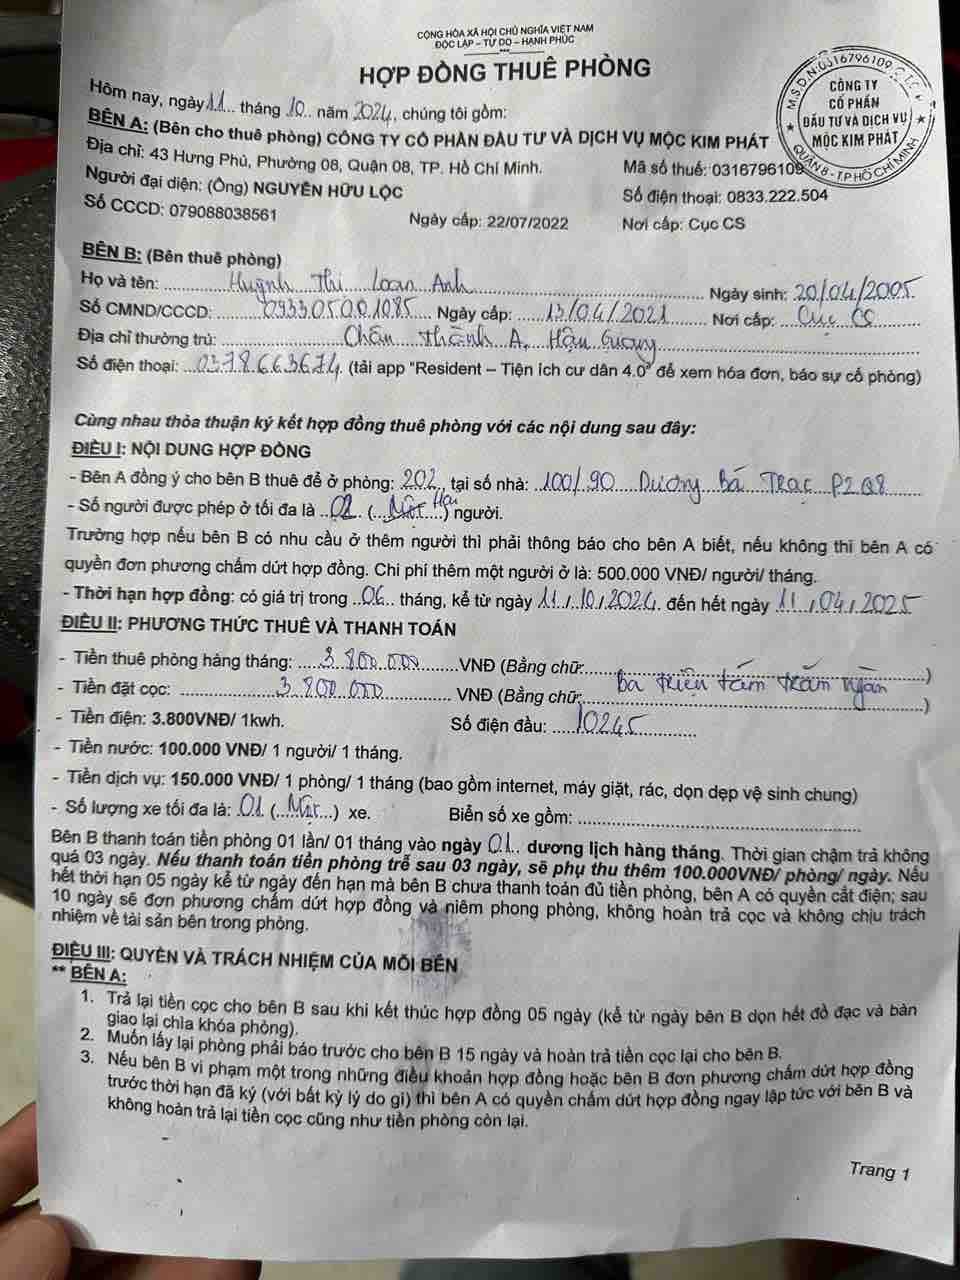 CỘNG HÒA XÃ HỘI CHỦ NGHĨA VIỆT NAM
ĐỘC LẬP – TỰ DO – HẠNH PHÚC
HỢP ĐỒNG THUÊ PHÒNG
M.S.D.N:0316796109
CÔNG TY
CỔ PHẦN
ĐẦU TƯ VÀ DỊCH VỤ
MỘC KIM PHÁT
QUẬN 8 - T.P HỒ CHÍ MINH
Hôm nay, ngày 11 tháng 10 năm 2024, chúng tôi gồm:
BÊN A: (Bên cho thuê phòng) CÔNG TY CỔ PHẦN ĐẦU TƯ VÀ DỊCH VỤ MỘC KIM PHÁT
Địa chỉ: 43 Hưng Phú, Phường 08, Quận 08, TP. Hồ Chí Minh. Mã số thuế: 0316796109
Người đại diện: (Ông) NGUYỄN HỮU LỘC Số điện thoại: 0833.222.504
Số CCCD: 079088038561 Ngày cấp: 22/07/2022 Nơi cấp: Cục CS
BÊN B: (Bên thuê phòng)
Họ và tên: Huỳnh Thi Loan Anh Ngày sinh: 20/04/2005
Số CMND/CCCD: 093305001085 Ngày cấp: 13/04/2021 Nơi cấp: Cục CS
Địa chỉ thường trú: Thành A, Hậu Giang
Số điện thoại: 0378663674 (tải app "Resident – Tiện ích cư dân 4.0" để xem hóa đơn, báo sự cố phòng)
Cùng nhau thỏa thuận ký kết hợp đồng thuê phòng với các nội dung sau đây:
ĐIỀU I: NỘI DUNG HỢP ĐỒNG
- Bên A đồng ý cho bên B thuê để ở phòng: 202 tại số nhà: 100/90 Dương Bá Trạc P2 Q8
- Số người được phép ở tối đa là 02 (Một Hai) người.
Trường hợp nếu bên B có nhu cầu ở thêm người thì phải thông báo cho bên A biết, nếu không thì bên A có
quyền đơn phương chấm dứt hợp đồng. Chi phí thêm một người ở là: 500.000 VNĐ/ người/ tháng.
- Thời hạn hợp đồng: có giá trị trong 06 tháng, kể từ ngày 11/10/2024 đến hết ngày 11/04/2025
ĐIỀU II: PHƯƠNG THỨC THUÊ VÀ THANH TOÁN
- Tiền thuê phòng hàng tháng: 3 800.000 VNĐ (Bằng chữ: )
- Tiền đặt cọc: 3 800.000 VNĐ (Bằng chữ: Ba triệu tám trăm ngàn )
- Tiền điện: 3.800VNĐ/ 1kwh. Số điện đầu: 10245
- Tiền nước: 100.000 VNĐ/ 1 người/ 1 tháng.
- Tiền dịch vụ: 150.000 VNĐ/ 1 phòng/ 1 tháng (bao gồm internet, máy giặt, rác, dọn dẹp vệ sinh chung)
- Số lượng xe tối đa là: 01 (Một) xe. Biển số xe gồm:
Bên B thanh toán tiền phòng 01 lần/ 01 tháng vào ngày 01 dương lịch hàng tháng. Thời gian chậm trả không
quá 03 ngày. Nếu thanh toán tiền phòng trễ sau 03 ngày, sẽ phụ thu thêm 100.000VNĐ/ phòng/ ngày. Nếu
hết thời hạn 05 ngày kể từ ngày đến hạn mà bên B chưa thanh toán đủ tiền phòng, bên A có quyền cắt điện; sau
10 ngày sẽ đơn phương chấm dứt hợp đồng và niêm phong phòng, không hoàn trả cọc và không chịu trách
nhiệm về tài sản bên trong phòng.
ĐIỀU III: QUYỀN VÀ TRÁCH NHIỆM CỦA MỖI BÊN
** BÊN A:
1. Trả lại tiền cọc cho bên B sau khi kết thúc hợp đồng 05 ngày (kể từ ngày bên B dọn hết đồ đạc và bàn
giao lại chìa khóa phòng).
2. Muốn lấy lại phòng phải báo trước cho bên B 15 ngày và hoàn trả tiền cọc lại cho bên B.
3. Nếu bên B vi phạm một trong những điều khoản hợp đồng hoặc bên B đơn phương chấm dứt hợp đồng
trước thời hạn đã ký (với bất kỳ lý do gì) thì bên A có quyền chấm dứt hợp đồng ngay lập tức với bên B và
không hoàn trả lại tiền cọc cũng như tiền phòng còn lại.
Trang 1